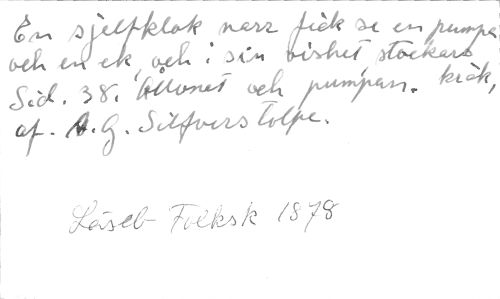 En sjelfklok narr fick se en pumpa
och en ek, och i sin vishet stackars
Sid. 38. Ållonet och pumpan.
af. A. G. Silfverstolpe.
Läseb Folksk 1878